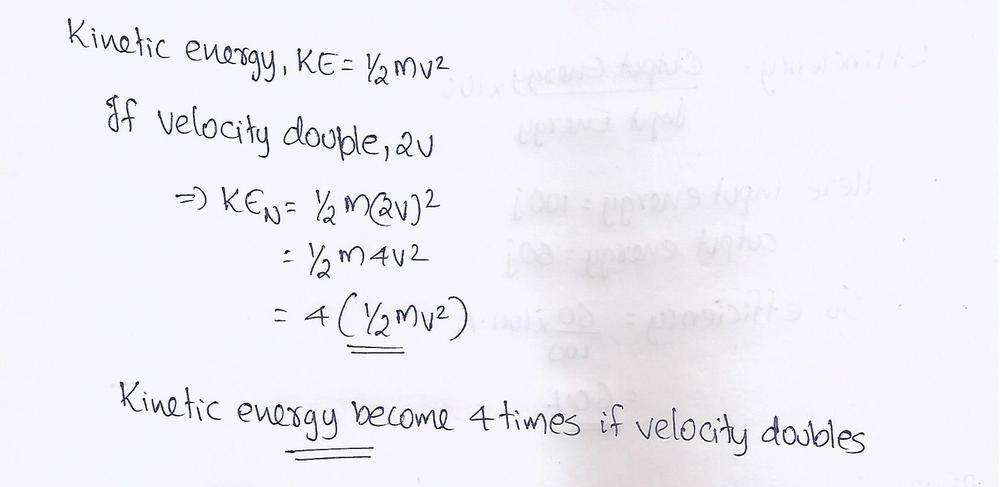 Kinetic energy, KE = ½mv²
If velocity double, 2v
⇒ KE_N = ½ m(2v)²
= ½ m4v²
= 4(½mv²)
Kinetic energy become 4 times if velocity doubles